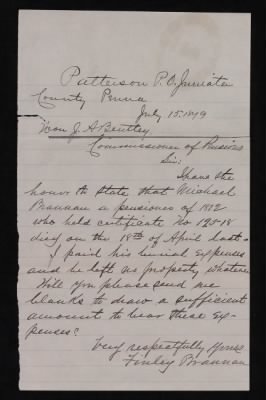 Patterson P.O. Juniata
County Penna
July 15. 1879
Hon J. A Bentley
Commissioner of Pensions
Sir:
I have the
honor to state that Michael
Brannan a pensioner of 1812
who held certificate No 12518
died on the 18th of April last.
I paid his burial expenses
and he left no property whatever
Will you please send me
blanks to draw a sufficient
amount to bear these ex-
penses?
Very respectfully yours
Finley Brannan